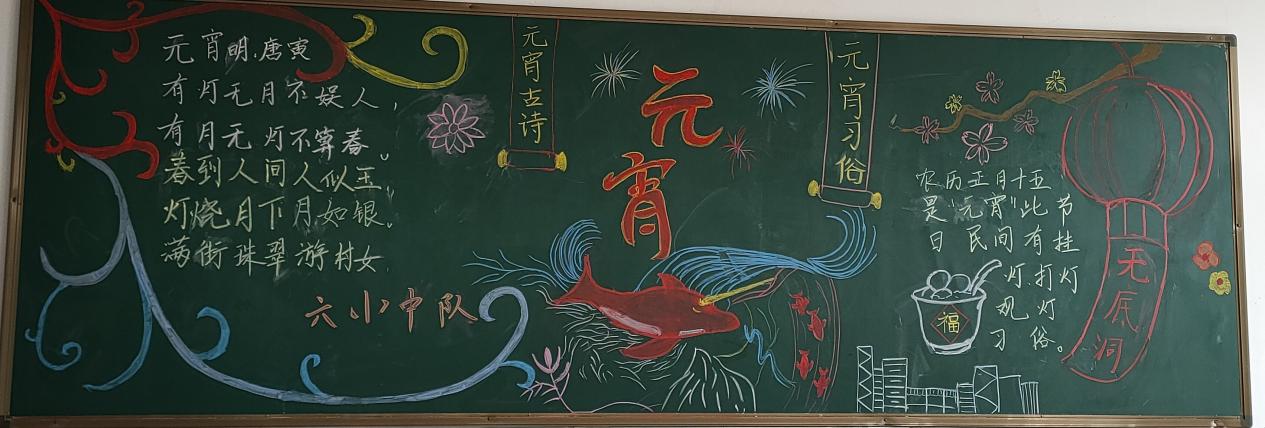 元宵明.唐寅
有灯无月不娱人，
有月无灯不算春。
春到人间人似玉，
灯烧月下月如银。
满街珠翠游村女
六小中队
元宵古诗
元宵
元宵习俗
农历正月十五
是"元宵"此节
日民间有挂
灯.打灯
观灯
习俗。
福
无底洞